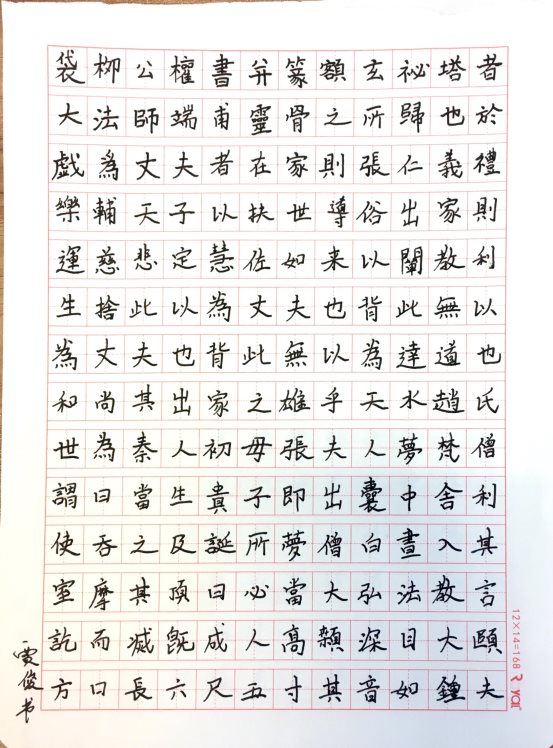 袋柳公權書并篆額玄祕塔者
大法師端甫靈骨之所歸也於
戲為丈夫者在家則張仁義禮
樂輔天子以扶世導俗出家則
運慈悲定慧佐如来以闡教利
生捨此以為丈夫也背此無以
為丈夫也背此無以為達道也
和尚其出家之雄乎天水趙氏
世為秦人初母張夫人夢梵僧
謂曰當生貴子即出囊中舍利
使吞之及誕所夢僧白晝入其
室摩其頂曰必當大弘法教言
訖而滅既成人高顙深目大頤
方口長六尺五寸其音如鍾夫
雯俊书
12×14=168